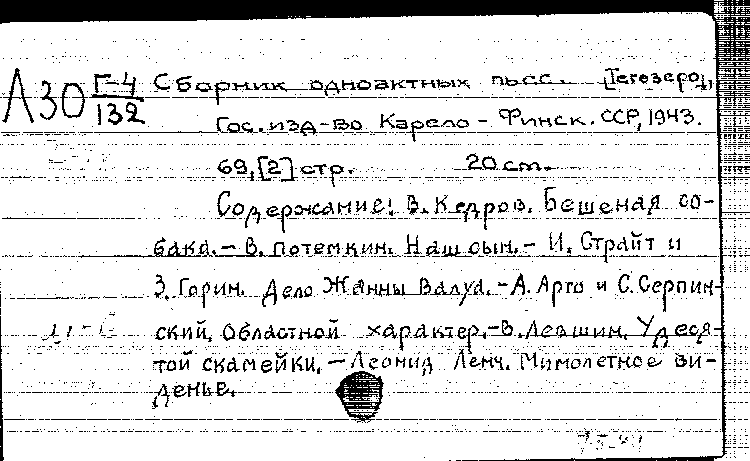 А30 Г-4 Сборник одноактных пьес. [Сегозеро],
132
Гос. изд-во Карело-Финск. ССР, 1943.
69, [2] стр. 20 cm.
Содержание: В. Кедров. Бешеная со-
бака. – В. Потемкин. Наш сын. – И. Страйт и
З. Горин. Дело Жанны Валуа. – А. Арго и С. Серпин-
ский. Областной характер. – В. Левшин. У деся-
той скамейки. – Леонид Ленч. Мимолетное ви-
денье.